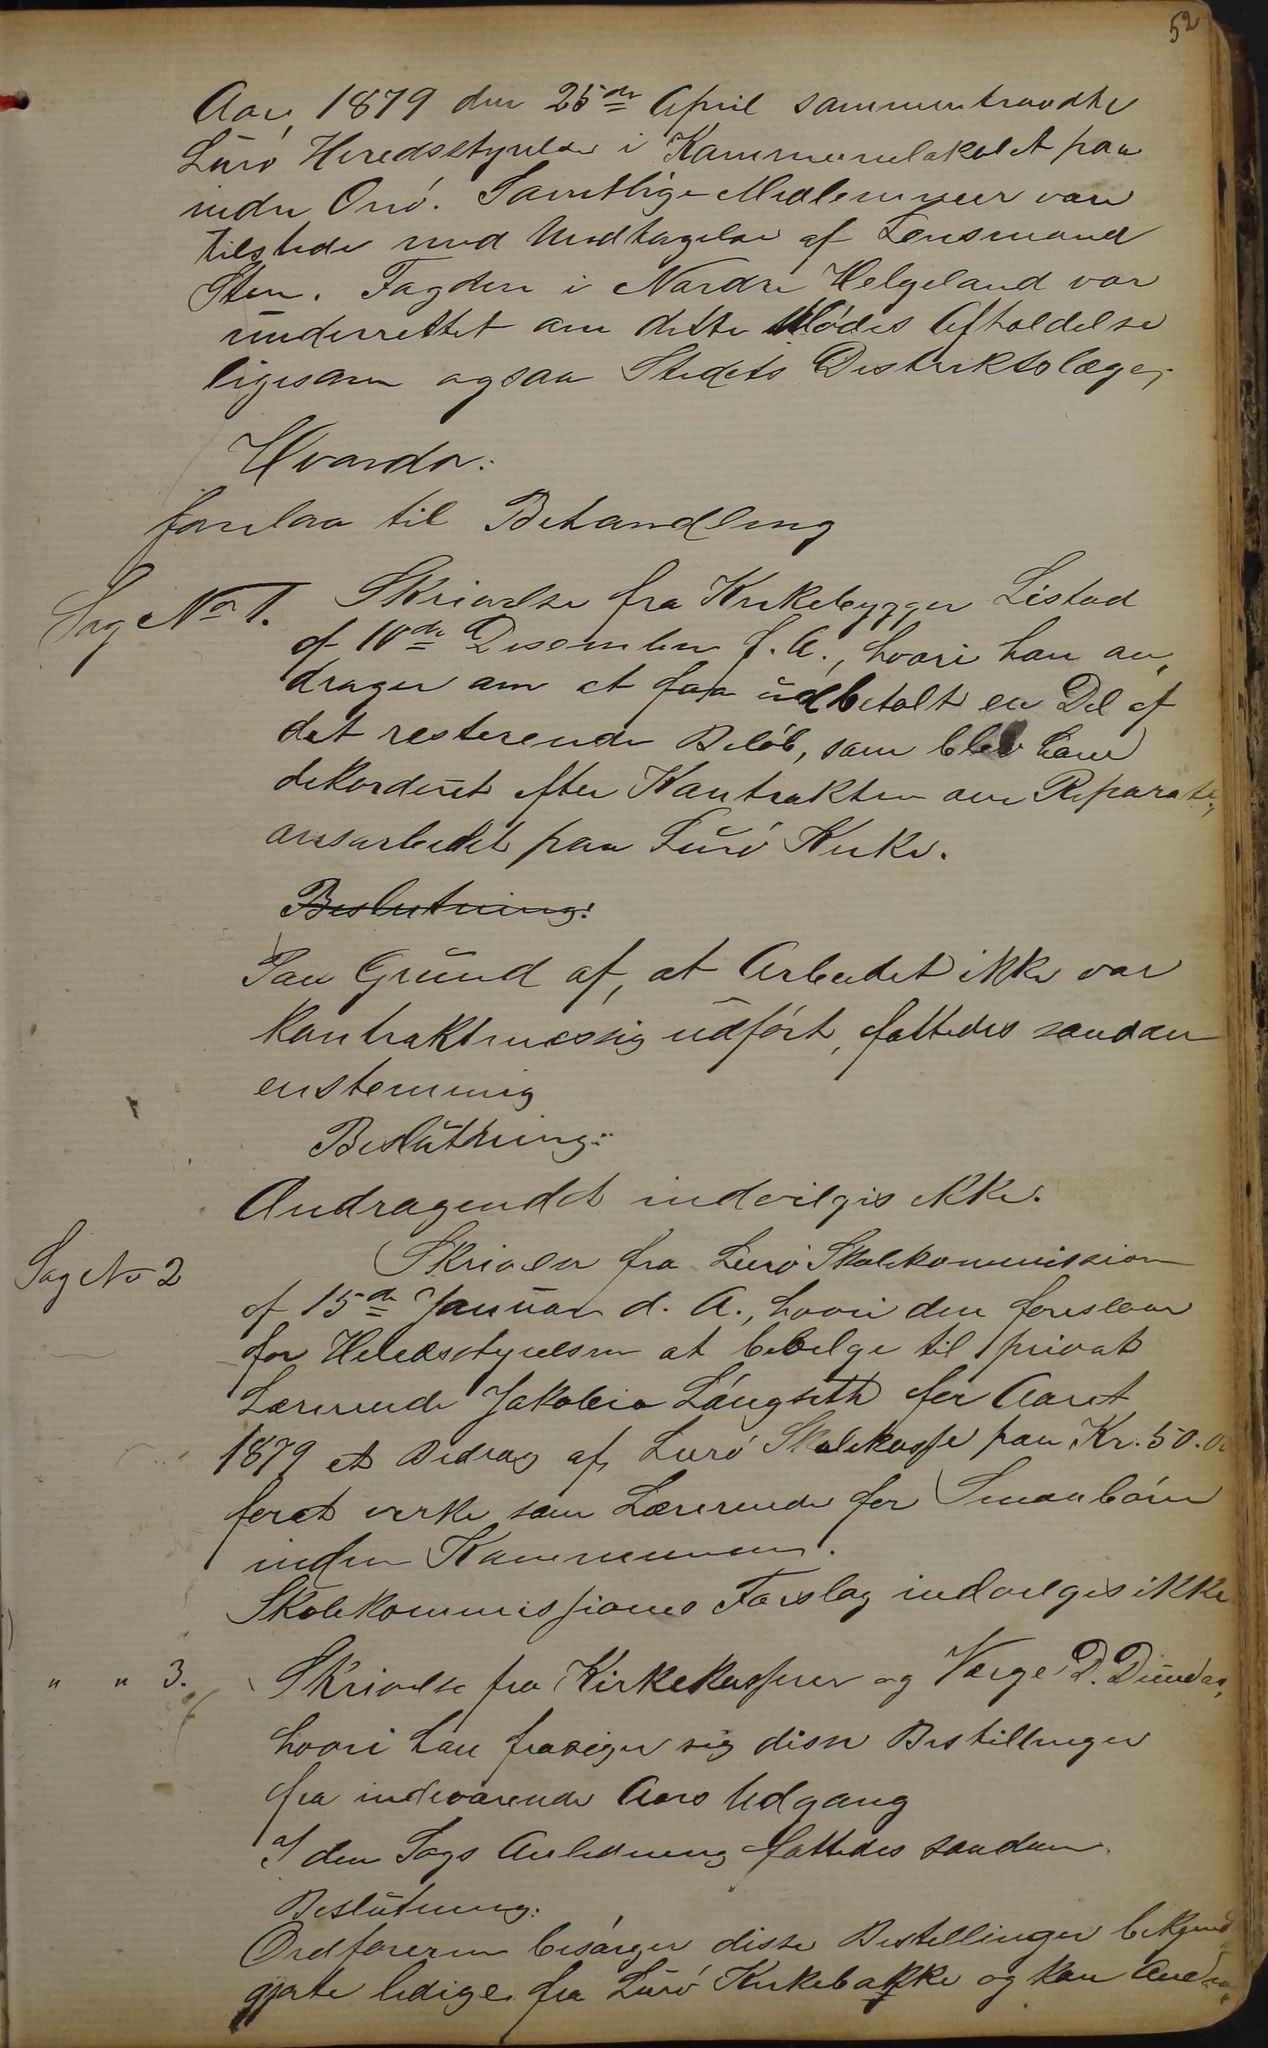 52
Aar 1879 den 25de April sammentraadte
Lurö Heredsstyrelse i Kommunelokalet paa
indre Onö. Samtlige Medlemmer var
tilstede med Undtagelse af Lensmand
Sten. Fogden i Nordre Helgeland var
underrettet om dette Mödes Afholdelse
ligesom ogsaa Stedets Distriktslæge,
Hvorda:
forelaa til Behandling
Sag No 1. Skrivelse fra Kirkebygger Listad
af 10de Desember f. A., hvori han an„
drager om at faa udbetalt en Del af
det resterende Belöb, som blev ham
dekorderet efter Kontrakten om Reparati„
onsarbeidet paa Lurö Kirke.
Beslutning:
Paa Grund af, at Arbeidet ikke var
kontraktmæssig udfört, fattedes saadan
enstemmig
Beslutning:
Andragendet indvilges ikke.
Sag No 2 Skrivelse fra Lurö Skolekommission
af 15de Januar d. A., hvori den foreslaar
for Heredsstyrelsen at bevilge til privat
Lærerinde Jakobia Långseth for Aaret
1879 et Bidrag af Lurö Skolekasse paa Kr. 50.00
for at virke som Lærerinde for Smaabörn
inden Kommunen.
Skolekommissionens Forslag indvilges ikke
" " 3. Skrivelse fra Kirkekasserer og Værge D. Dundas,
hvori han frasiger sig disse Bestillinger
fra indeværende Aars Udgang
I den Sags Anledning fattedes saadan
Beslutning:
Ordföreren besörger disse Bestillinger bekjend
gjorte ledige fra Lurö Kirkebakke og kan